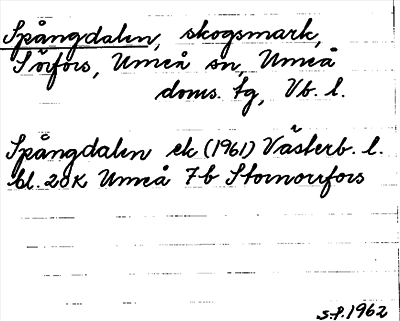 Spångdalen, skogsmark,
Sörfors, Umeå sn, Umeå
doms. tg, Vb. l.
Spångdalen ek (1961) Västerb. l.
bl. 20K Umeå 7b Stornorrfors
S.P. 1962